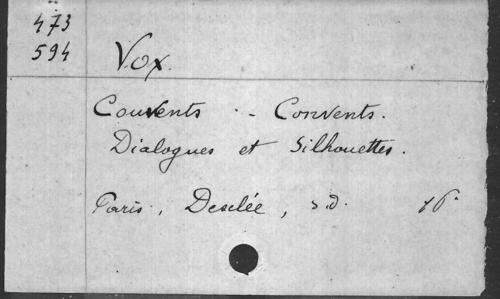 473
594
Vox.
Couvents - Convents.
Dialogues et Silhouettes.
Paris, Desclée, s.d. 16°